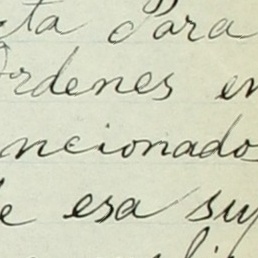 cta Para
Ordenes en
ncionados
e esa su